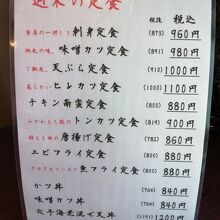 近来の定食
税抜 税込
当店の一押し! 刺身定食 (873) 960円
味噌カツ定食 (891) 980円
天ぷら定食 (910) 1000円
ヒレカツ定食 (1000) 1100円
チキン南蛮定食 (800) 880円
トンカツ定食 (819) 900円
唐揚げ定食 (800) 880円
エビフライ定食 (800) 880円
魚フライ定食 (800) 880円
カツ丼 (764) 840円
味噌カツ丼 (764) 840円
穴子海老混ぜ天丼 (1091) 1200円